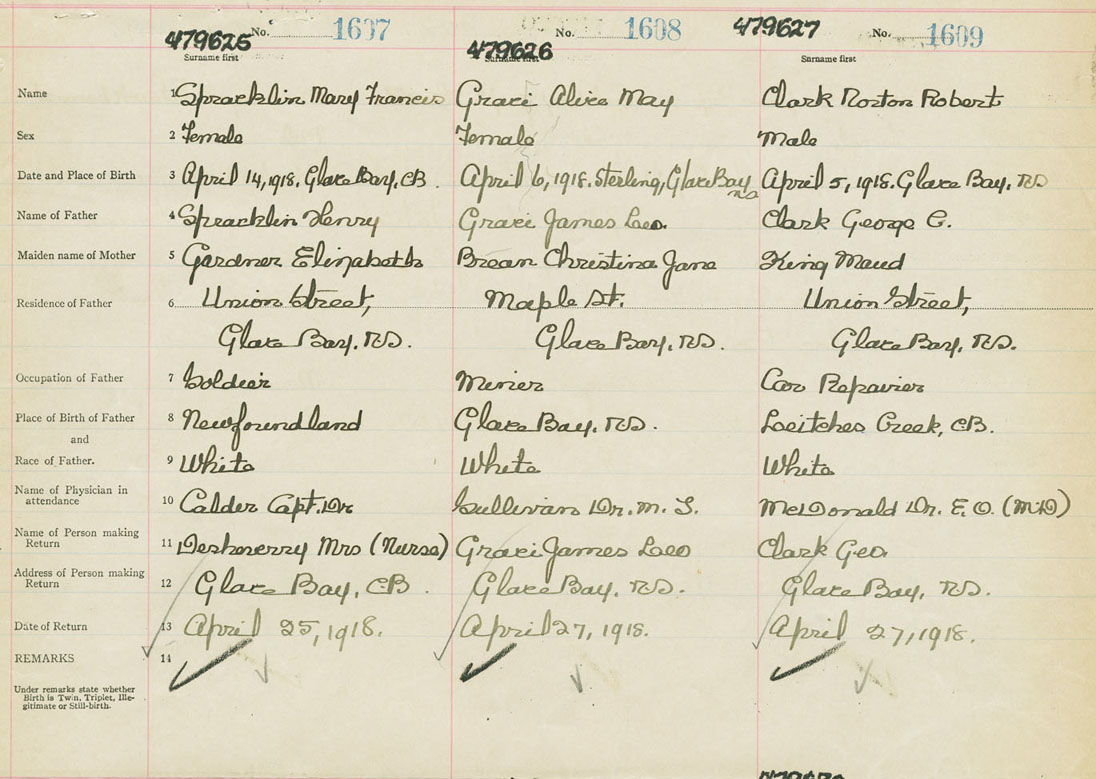 479625 No. 1607 479626 No. 1608 479627 No. 1609
Surname first Surname first Surname first
Name 1 Spracklin Mary Francis Graci Alice May Clark Norton Robert
Sex 2 Female Female Male
Date and Place of Birth 3 April 14, 1918. Glace Bay, CB. April 6, 1918. Sterling, Glace Bay NS April 5, 1918. Glace Bay, NS
Name of Father 4 Spracklin Henry Graci James Leo. Clark George C.
Maiden name of Mother 5 Gardner Elizabeth Brean Christina Jane King Maud
Residence of Father 6 Union Street, Maple St. Union Street,
Glace Bay, NS. Glace Bay, NS. Glace Bay, NS.
Occupation of Father 7 Soldier Miner Car Repairer
Place of Birth of Father 8 Newfoundland Glace Bay, NS. Leitches Creek, CB.
and
Race of Father. 9 White White White
Name of Physician in
attendance 10 Calder Capt. Dr Sullivan Dr. M. S. McDonald Dr. E. O. (MD)
Name of Person making
Return 11 Mrs (Nurse) Graci James Leo Clark Geo.
Address of Person making
Return 12 Glace Bay, CB. Glace Bay, NS. Glace Bay, NS.
Date of Return 13 April 25, 1918. April 27, 1918. April 27, 1918.
REMARKS 14
Under remarks state whether
Birth is Twin, Triplet, Ille-
gitimate or Still-birth.